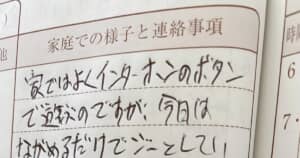 他 家庭での様子と連絡事項 時
家ではよくインターホンのボタン
で遊ぶのですが、今日は
ながめるだけでジーとしてい
6
7・